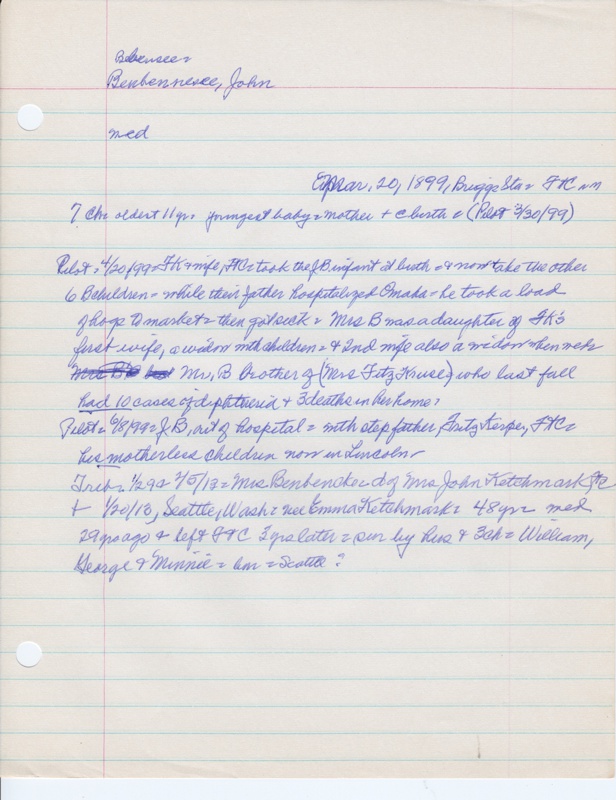 Benbennesee, John
med
20, 1899, Briggs Sta = FtC
7 Ch = oldest 11 yr = youngest baby = mother + c birth = (Pilot 3/30/99)
Pilot = 4/20/99 = FK + wife, FtC = took the JB infant at birth = + now take the other
6 B children = while their father hospitalized Omaha = he took a load
of hogs to market = then got sick = Mrs B was a daughter of FK's
first wife, a widow with children = + 2nd wife also a widow when
Mr. B brother of (Mrs Fitz Kruse) who last fall
had 10 cases of diphtheria + 3 deaths in her home =
Pilot = 6/8/99 = J.B, out of hospital = with step father, Fritz FtC =
his motherless children now in Lincoln
Trib = 1/29 + 2/5/13 = Mrs Benbeneke d of Mrs John Ketchmark, FtC
+ 1/20/13, Seattle, Wash = nee Emma Ketchmark = 48 yr = med
29 yr ago + left FtC 2 yrs later = sur by hus + 3 ch = William,
George + Minnie = = Seattle?